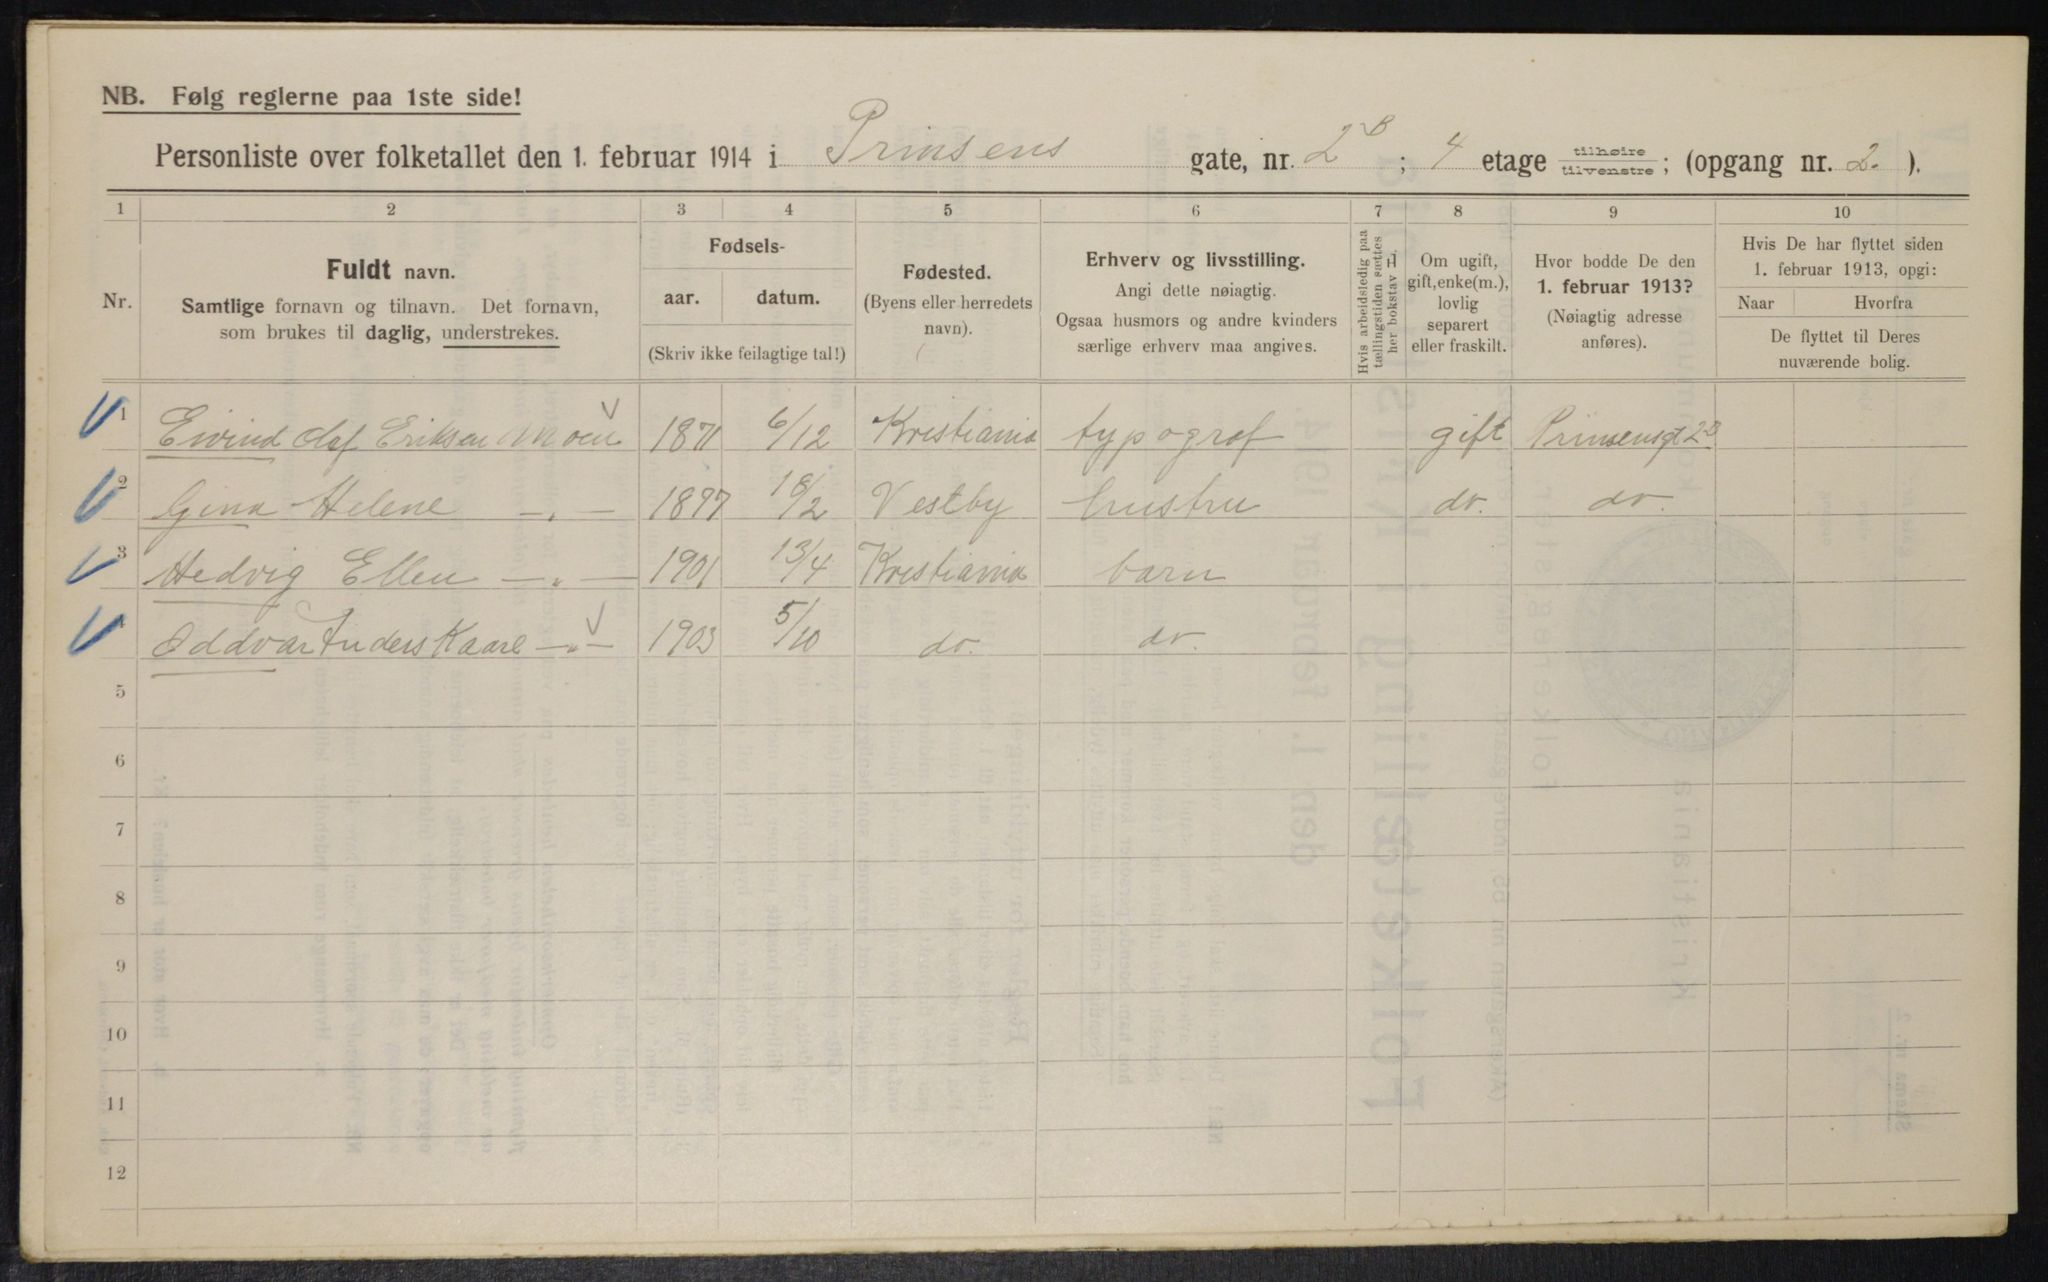 NB. Følg reglerne paa 1ste side!
Personliste over folketallet den 1. februar 1914 i Prinsens gate, nr. 2B; 4 etage tilhøire tilvenstre; (opgang nr. 2.).
1 2 3 4 5 6 7 8 9 10
Nr.
Fuldt navn.
Samtlige fornavn og tilnavn. Det fornavn,
som brukes til daglig, understrekes.
Fødsels-
aar. datum.
(Skriv ikke feilagtige tal!)
Fødested.
(Byens eller herredets
navn).
Erhverv og livsstilling.
Angi dette nøiagtig.
Ogsaa husmors og andre kvinders
særlige erhverv maa angives.
Hvis arbeidsledig paa
tællingstiden sættes
her bokstav L.
Om ugift,
gift, enke(m.),
lovlig
separert
eller fraskilt.
Hvor bodde De den
1. februar 1913?
(Nøiagtig adresse
anføres).
Hvis De har flyttet siden
1. februar 1913, opgi:
Naar Hvorfra
De flyttet til Deres
nuværende bolig.
1 Eivind Olaf Eriksen Moen 1871 6/12 Kristiania typograf gift Prinsensgt 2B
2 Gina Helene —„— 1877 18/2 Vestby hustru do. do.
3 Hedvig Ellen —„— 1901 13/4 Kristiania barn
4 Oddvar Anders Kaare —„— 1903 5/10 do. do.
5
6
7
8
9
10
11
12